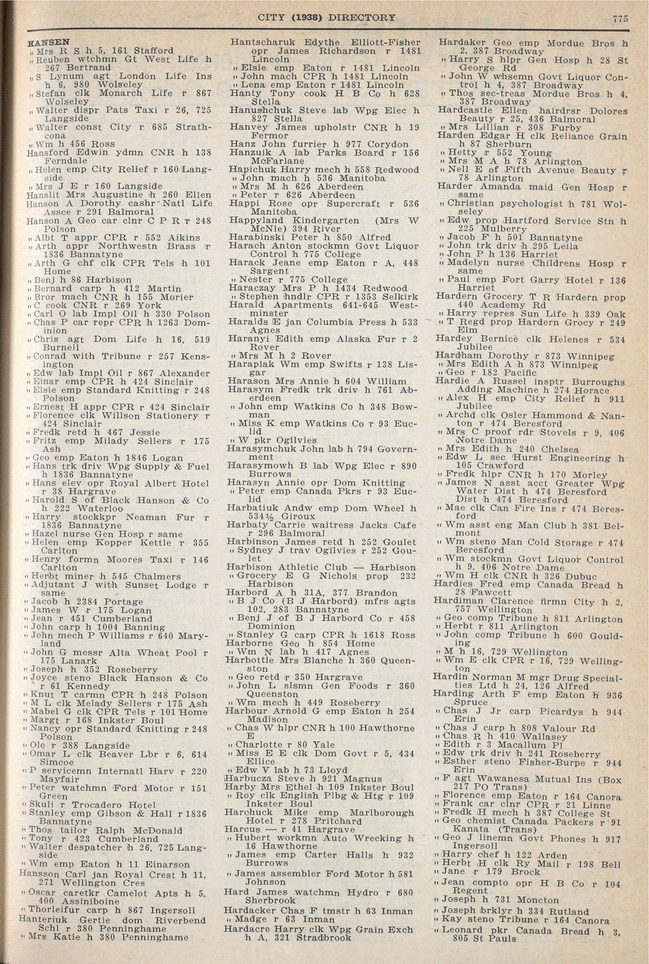 CITY (1938) DIRECTORY 775
HANSEN
„ Mrs R S h 5, 161 Stafford
„ Reuben wtchmn Gt West Life h
267 Bertrand
„ S Lynum agt London Life Ins
h 6, 980 Wolseley
„ Stefan clk Monarch Life r 867
Wolseley
„ Walter dispr Pats Taxi r 26, 725
Langside
„ Walter const City r 685 Strath-
cona
„ Wm h 456 Ross
Hansford Edwin ydmn CNR h 138
Ferndale
„ Helen emp City Relief r 160 Lang-
side
„ Mrs J E r 160 Langside
Hanslit Mrs Augustine h 260 Ellen
Hanson A Dorothy cashr Natl Life
Assce r 291 Balmoral
Hanson A Geo car clnr C P R r 248
Polson
„ Albt T appr CPR r 552 Aikins
„ Arth appr Northwestn Brass r
1836 Bannatyne
„ Arth G chf clk CPR Tels h 101
Home
„ Benj h 86 Harbison
„ Bernard carp h 412 Martin
„ Bror mach CNR h 155 Morier
„ C cook CNR r 269 York
„ Carl O lab Impl Oil h 330 Polson
„ Chas P car repr CPR h 1263 Dom-
inion
„ Chris agt Dom Life h 16, 519
Burnell
„ Conrad with Tribune r 257 Kens-
ington
„ Edw lab Impl Oil r 867 Alexander
„ Einar emp CPR h 424 Sinclair
„ Elsie emp Standard Knitting r 248
Polson
„ Ernest H appr CPR r 424 Sinclair
„ Florence clk Willson Stationery r
424 Sinclair
„ Fredk retd h 467 Jessie
„ Fritz emp Milady Sellers r 175
Ash
„ Geo emp Eaton h 1846 Logan
„ Hans trk driv Wpg Supply & Fuel
h 1836 Bannatyne
„ Hans elev opr Royal Albert Hotel
r 38 Hargrave
„ Harold S of Black Hanson & Co
h 222 Waterloo
„ Harry stockkpr Neaman Fur r
1836 Bannatyne
„ Hazel nurse Gen Hosp r same
„ Helen emp Kopper Kettle r 355
Carlton
„ Henry formn Moores Taxi r 146
Carlton
„ Herbt miner h 545 Chalmers
„ Adjutant J with Sunset Lodge r
same
„ Jacob h 2384 Portage
„ James W r 175 Logan
„ Jean r 451 Cumberland
„ John carp h 1004 Banning
„ John mech P Williams r 640 Mary-
land
„ John G messr Alta Wheat Pool r
175 Lanark
„ Joseph h 352 Roseberry
„ Joyce steno Black Hanson & Co
r 61 Kennedy
„ Knut T carmn CPR h 248 Polson
„ M L clk Melady Sellers r 175 Ash
„ Mabel G clk CPR Tels r 101 Home
„ Margt r 168 Inkster Boul
„ Nancy opr Standard Knitting r 248
Polson
„ Ole r 388 Langside
„ Omar L clk Beaver Lbr r 6, 614
Simcoe
„ P servicemn Internatl Harv r 220
Mayfair
„ Peter watchmn Ford Motor r 151
Green
„ Skuli r Trocadero Hotel
„ Stanley emp Gibson & Hall r 1836
Bannatyne
„ Thos tailor Ralph McDonald
„ Tony r 423 Cumberland
„ Walter despatcher h 26, 725 Lang-
side
„ Wm emp Eaton h 11 Einarson
Hansson Carl jan Royal Crest h 11,
271 Wellington Cres
„ Oscar caretkr Camelot Apts h 5,
400 Assiniboine
„ Thorleifur carp h 867 Ingersoll
Hanteriuk Gertie dom Riverbend
Schl r 380 Penninghame
„ Mrs Katie h 380 Penninghame
Hantscharuk Edythe Elliott-Fisher
opr James Richardson r 1481
Lincoln
„ Elsie emp Eaton r 1481 Lincoln
„ John mach CPR h 1481 Lincoln
„ Lena emp Eaton r 1481 Lincoln
Hanty Tony cook H B Co h 628
Stella
Hanushchuk Steve lab Wpg Elec h
827 Stella
Hanvey James upholstr CNR h 19
Fermor
Hanz John furrier h 977 Corydon
Hanzuik A lab Parks Board r 156
McFarlane
Hapichuk Harry mech h 558 Redwood
„ John mach h 536 Manitoba
„ Mrs M h 626 Aberdeen
„ Peter r 626 Aberdeen
Happi Rose opr Supercraft r 536
Manitoba
Happyland Kindergarten (Mrs W
McNie) 394 River
Harabinski Peter h 850 Alfred
Harach Anton stockmn Govt Liquor
Control h 775 College
Harack Jeane emp Eaton r A, 448
Sargent
„ Nester r 775 College
Haraczay Mrs P h 1434 Redwood
„ Stephen hndlr CPR r 1353 Selkirk
Harald Apartments 641-645 West-
minster
Haralds E jan Columbia Press h 533
Agnes
Haranyi Edith emp Alaska Fur r 2
Rover
„ Mrs M h 2 Rover
Haraplak Wm emp Swifts r 138 Lis-
gar
Harason Mrs Annie h 604 William
Harasym Fredk trk driv h 761 Ab-
erdeen
„ John emp Watkins Co h 348 Bow-
man
„ Miss K emp Watkins Co r 93 Euc-
lid
„ W pkr Ogilvies
Harasymchuk John lab h 794 Govern-
ment
Harasymowh B lab Wpg Elec r 890
Burrows
Harasyn Annie opr Dom Knitting
„ Peter emp Canada Pkrs r 93 Euc-
lid
Harbatiuk Andw emp Dom Wheel h
534½ Giroux
Harbaty Carrie waitress Jacks Cafe
r 296 Balmoral
Harbinson James retd h 252 Goulet
„ Sydney J trav Ogilvies r 252 Gou-
let
Harbison Athletic Club — Harbison
„ Grocery E G Nichols prop 232
Harbison
Harbord A h 31A, 377 Brandon
„ B J Co (B J Harbord) mfrs agts
102, 283 Bannatyne
„ Benj J of B J Harbord Co r 458
Dominion
„ Stanley G carp CPR h 1618 Ross
Harborne Geo h 854 Home
„ Wm N lab h 417 Agnes
Harbottle Mrs Blanche h 360 Queen-
ston
„ Geo retd r 350 Hargrave
„ John L slsmn Gen Foods r 360
Queenston
„ Wm mech h 449 Roseberry
Harbour Arnold G emp Eaton h 254
Madison
„ Chas W hlpr CNR h 100 Hawthorne
E
„ Charlotte r 80 Yale
„ Miss E E clk Dom Govt r 5, 434
Ellice
„ Edw V lab h 73 Lloyd
Harbucza Steve h 921 Magnus
Harby Mrs Ethel h 109 Inkster Boul
„ Roy clk English Plbg & Htg r 109
Inkster Boul
Harchuck Mike emp Marlborough
Hotel r 278 Pritchard
Harcus — r 41 Hargrave
„ Hubert workmn Auto Wrecking h
16 Hawthorne
„ James emp Carter Halls h 932
Burrows
„ James assembler Ford Motor h 581
Johnson
Hard James watchmn Hydro r 680
Sherbrook
Hardacker Chas F tmstr h 63 Inman
„ Madge r 63 Inman
Hardacre Harry clk Wpg Grain Exch
h A, 321 Stradbrook
Hardaker Geo emp Mordue Bros h
2, 387 Broadway
„ Harry S hlpr Gen Hosp h 28 St
George Rd
„ John W whsemn Govt Liquor Con-
trol h 4, 387 Broadway
„ Thos sec-treas Mordue Bros h 4,
387 Broadway
Hardcastle Ellen hairdrsr Dolores
Beauty r 25, 436 Balmoral
„ Mrs Lillian r 308 Furby
Harden Edgar H clk Reliance Grain
h 87 Sherburn
„ Hetty r 552 Young
„ Mrs M A h 78 Arlington
„ Nell E of Fifth Avenue Beauty r
78 Arlington
Harder Amanda maid Gen Hosp r
same
„ Christian psychiatrist h 781 Wol-
seley
„ Edw prop Hartford Service Stn h
225 Mulberry
„ Jacob F h 501 Bannatyne
„ John trk driv h 295 Leila
„ John P h 136 Harriet
„ Madelyn nurse Childrens Hosp r
same
„ Paul emp Fort Garry Hotel r 136
Harriet
Hardern Grocery T R Hardern prop
440 Academy Rd
„ Harry repres Sun Life h 339 Oak
„ T Regd prop Hardern Grocy r 249
Elm
Hardey Bernice clk Helenes r 534
Jubilee
Hardham Dorothy r 873 Winnipeg
„ Mrs Edith A h 873 Winnipeg
„ Geo r 182 Pacific
Hardie A Russel insptr Burroughs
Adding Machine h 274 Horace
„ Alex H emp City Relief h 911
Jubilee
„ Archd clk Osler Hammond & Nan-
ton r 474 Beresford
„ Mrs C proof rdr Stovels r 9, 406
Notre Dame
„ Mrs Edith h 240 Chelsea
„ Edw L sec Hurst Engineering h
105 Crawford
„ Fredk hlpr CNR h 170 Morley
„ James N asst acct Greater Wpg
Water Dist h 474 Beresford
Dist h 474 Beresford
„ Mae clk Can Fire Ins r 474 Beres-
ford
„ Wm asst eng Man Club h 381 Bel-
mont
„ Wm steno Man Cold Storage r 474
Beresford
„ Wm stockmn Govt Liquor Control
h 9, 406 Notre Dame
„ Wm H clk CNR h 326 Dubuc
Hardies Fred emp Canada Bread h
28 Fawcett
Hardiman Clarence firmn City h 2,
757 Wellington
„ Geo comp Tribune h 811 Arlington
„ Herbt r 811 Arlington
„ John comp Tribune h 600 Gould-
ing
„ M h 16, 729 Wellington
„ Wm E clk CPR r 16, 729 Welling-
ton
Hardin Norman M mgr Drug Special-
ties Ltd h 24, 126 Alfred
Harding Arth F emp Eaton h 936
Spruce
„ Chas J Jr carp Picardys h 944
Erin
„ Chas J carp h 808 Valour Rd
„ Chas R h 410 Wallasey
„ Edith r 3 Macallum Pl
„ Edw trk driv h 241 Roseberry
„ Esther steno Fisher-Burpe r 944
Erin
„ F agt Wawanesa Mutual Ins (Box
217 PO Trans)
„ Florence emp Eaton r 164 Canora
„ Frank car clnr CPR r 21 Linne
„ Fredk H mech h 387 College St
„ Geo chemist Canada Packers r 91
Kanata (Trans)
„ Geo J linemn Govt Phones h 917
Ingersoll
„ Harry chef h 122 Arden
„ Herbt H clk Ry Mail r 198 Bell
„ Jane r 179 Brock
„ Jean compto opr H B Co r 104
Regent
„ Joseph h 731 Moncton
„ Joseph brklyr h 334 Rutland
„ Kay steno Tribune r 164 Canora
„ Leonard pkr Canada Bread h 3,
805 St Pauls